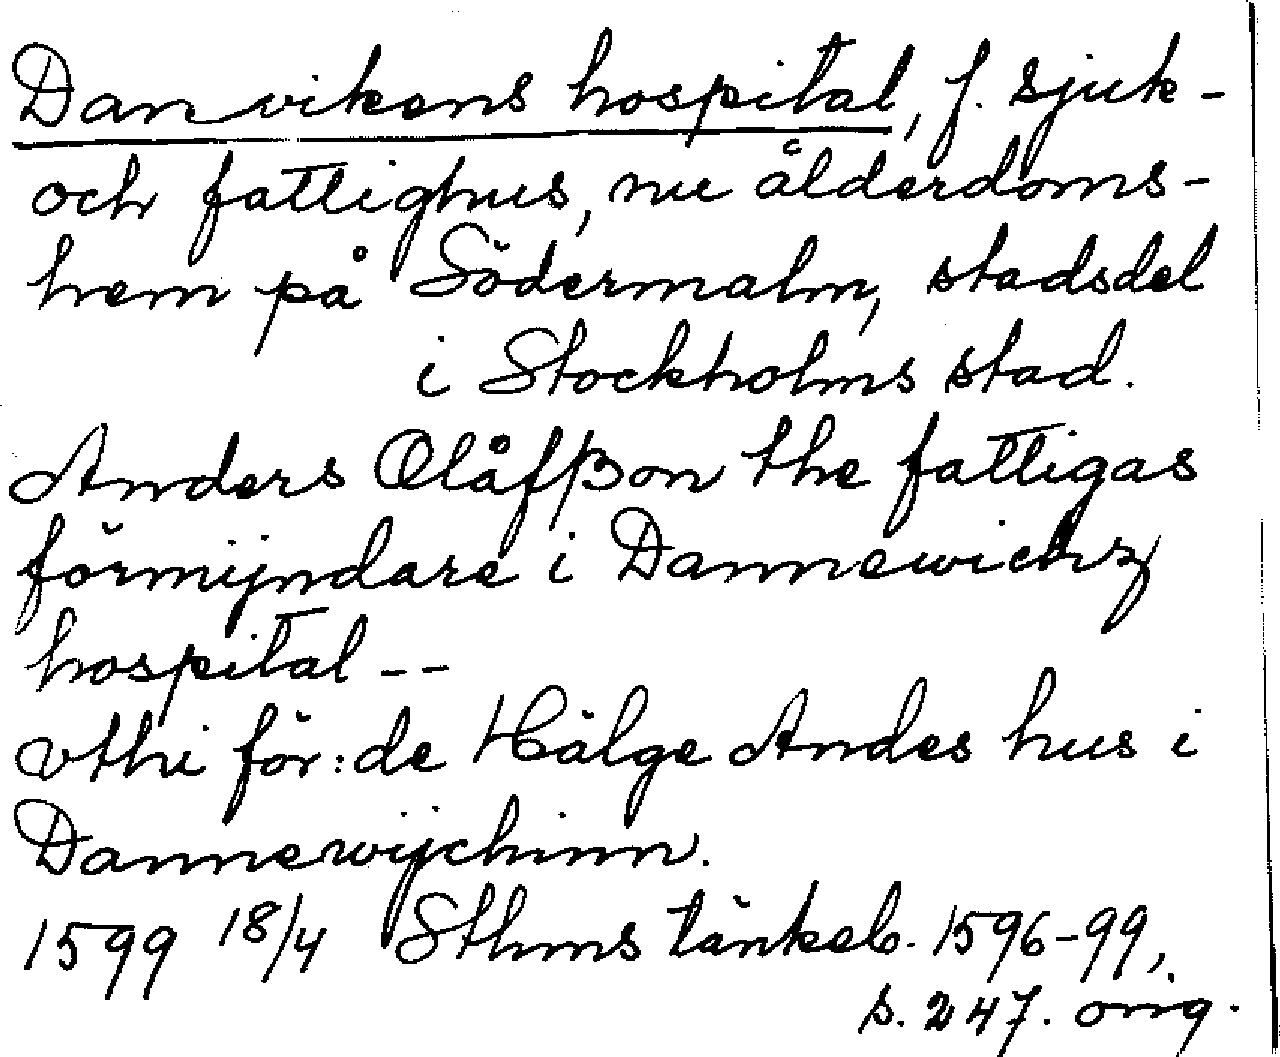 Danvikens hospital, f. sjuk-
och fattighus, nu ålderdoms-
hem på Södermalm, stadsdel
i Stockholms stad.
Anders Olåfßon the fattigas
förmijndare i Dannewichz
hospital --
vthi för:de Hälge Andes hus i
Dannewijchinn.
1599 18/4 Sthms tänkeb. 1596-99,
s. 247. orig.